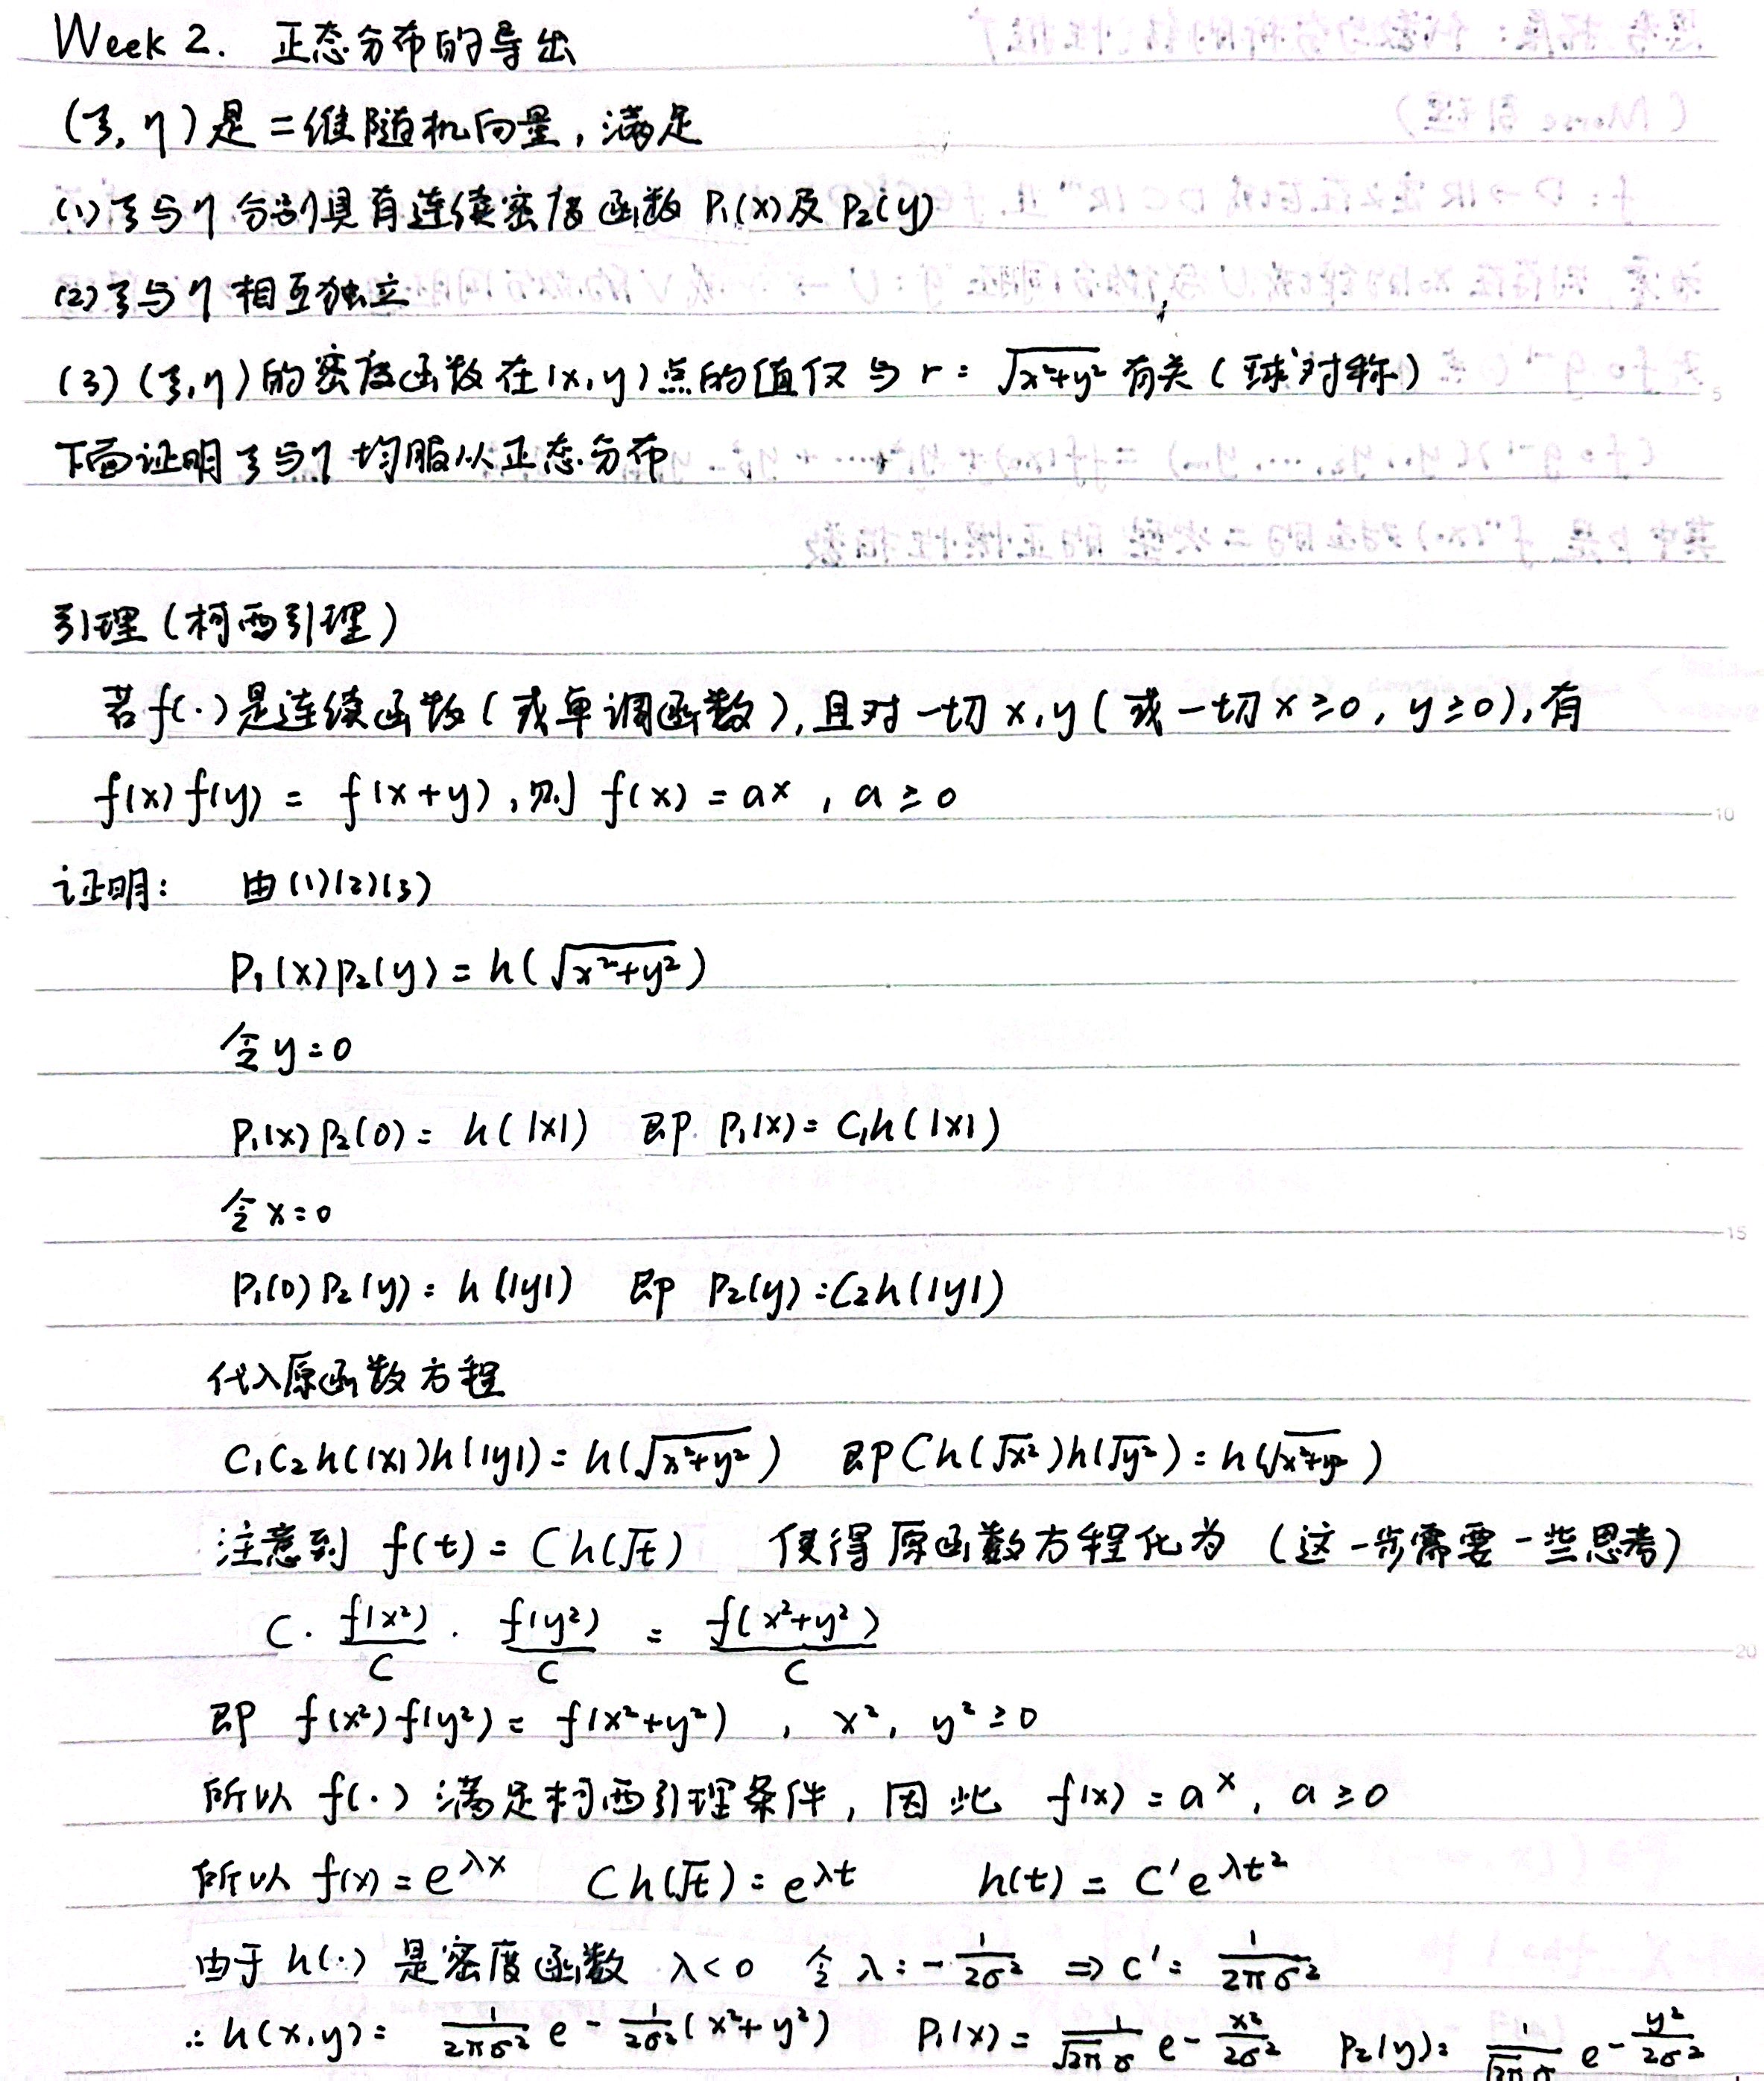 Week 2. 正态分布的导出
(ξ, η)是二维随机向量, 满足
(1) ξ与η分别具有连续密度函数 P₁(x)及 P₂(y)
(2) ξ与η 相互独立
(3) (ξ,η)的密度函数在(x,y)点的值仅与 r = √(x²+y²) 有关 (球对称)
下面证明ξ与η 均服从正态分布
引理 (柯西引理)
若 f(·)是连续函数 (或单调函数), 且对一切 x,y (或一切 x≥0, y≥0), 有
f(x)f(y) = f(x+y), 则 f(x) = aˣ, a≥0
证明: 由(1)(2)(3)
P₁(x)P₂(y) = h(√(x²+y²))
令 y=0
P₁(x)P₂(0) = h(|x|) 即 P₁(x) = C₁h(|x|)
令 x=0
P₁(0)P₂(y) = h(|y|) 即 P₂(y) = C₂h(|y|)
代入原函数方程
C₁C₂h(|x|)h(|y|) = h(√(x²+y²)) 即 Ch(√x²)h(√y²) = h(√(x²+y²))
注意到 f(t) = Ch(√t) 使得原函数方程化为 (这一步需要一些思考)
C · f(x²)/C · f(y²)/C = f(x²+y²)/C
即 f(x²)f(y²) = f(x²+y²), x², y²≥0
所以 f(·) 满足柯西引理条件, 因此 f(x) = aˣ, a≥0
所以 f(x) = e^{λx} Ch(√t) = e^{λt} h(t) = C'e^{λt²}
由于 h(·) 是密度函数 λ<0 令 λ = -1/(2σ²) ⇒ C' = 1/(2πσ²)
∴ h(x,y) = 1/(2πσ²) e^{-1/(2σ²)(x²+y²)} P₁(x) = 1/(√(2π)σ) e^{-x²/(2σ²)} P₂(y) = 1/(√(2π)σ) e^{-y²/(2σ²)}